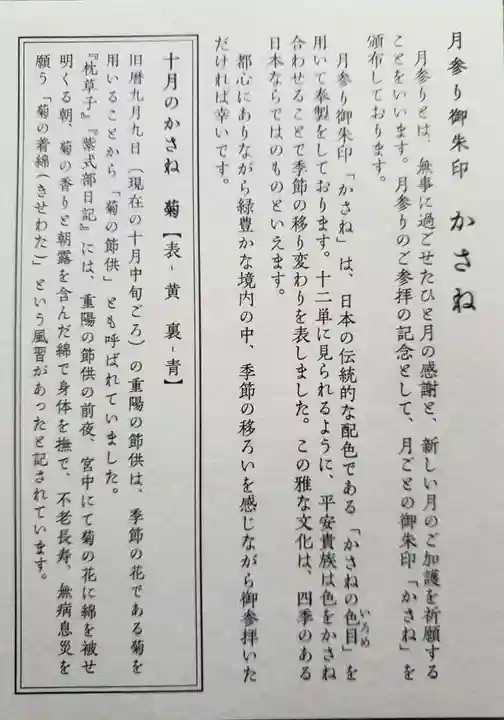 月参り御朱印 かさね
月参りとは、無事に過ごせたひと月の感謝と、新しい月のご加護を祈願する
ことをいいます。月参りのご参拝の記念として、月ごとの御朱印「かさね」を
頒布しております。
月参り御朱印「かさね」は、日本の伝統的な配色である「かさねの色目」を
いろめ
用いて奉製をしております。十二単に見られるように、平安貴族は色をかさね
合わせることで季節の移り変わりを表しました。この雅な文化は、四季のある
日本ならではのものといえます。
都心にありながら緑豊かな境内の中、季節の移ろいを感じながら御参拝いた
だければ幸いです。
十月のかさね 菊【表-黄 裏-青】
旧暦九月九日(現在の十月中旬ごろ)の重陽の節供は、季節の花である菊を
用いることから「菊の節供」とも呼ばれていました。
『枕草子』『紫式部日記』には、重陽の節供の前夜、宮中にて菊の花に綿を被せ
明くる朝、菊の香りと朝露を含んだ綿で身体を撫で、不老長寿、無病息災を
願う「菊の着綿(きせわた)」という風習があったと記されています。